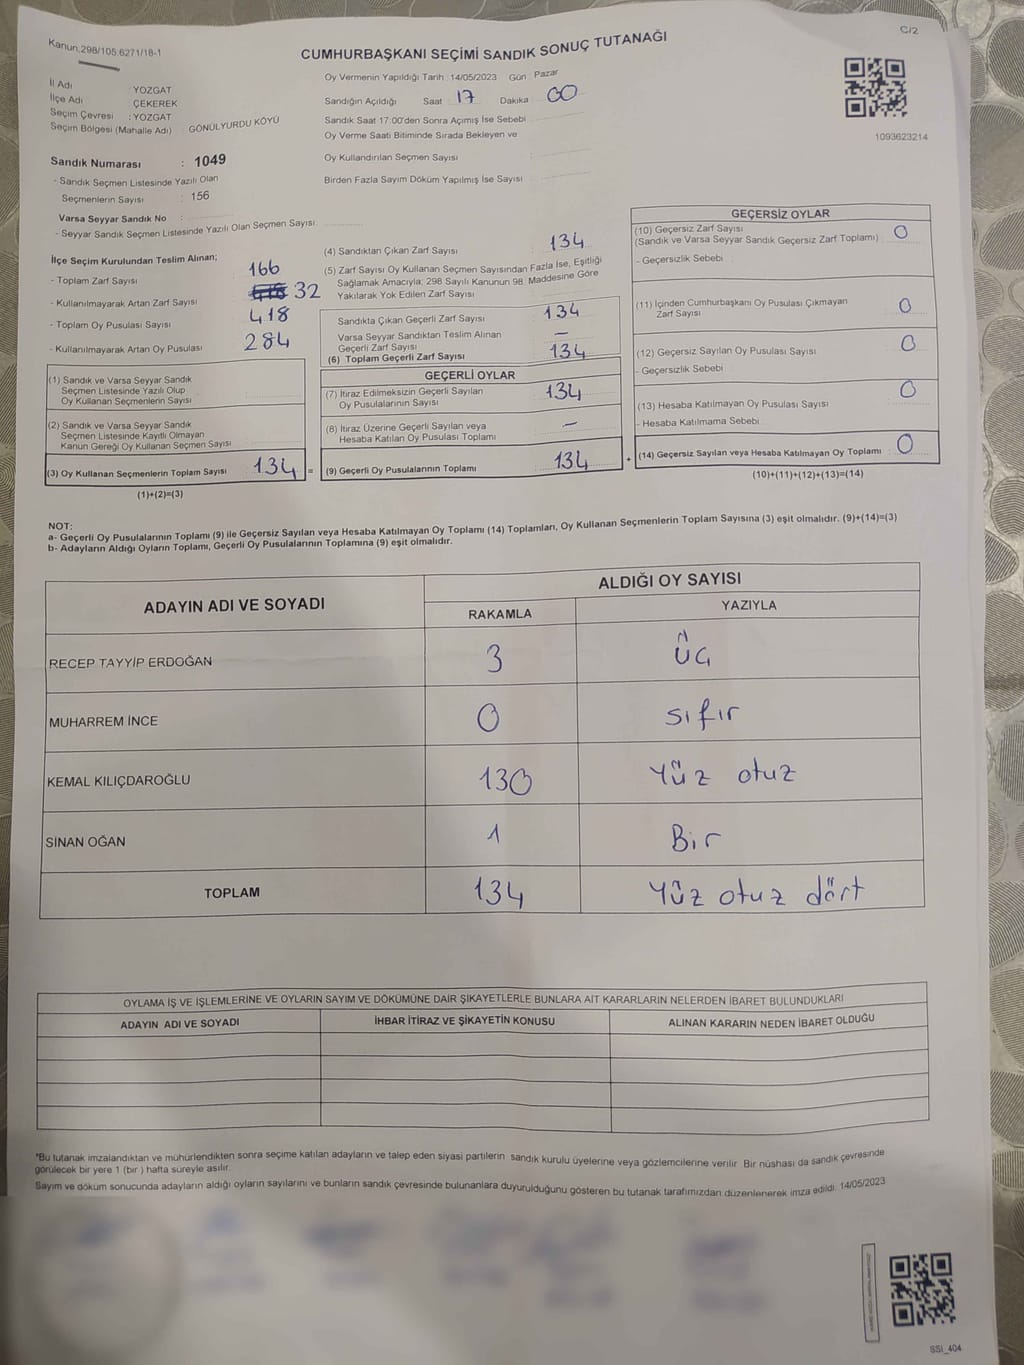 Kanun;298/105,6271/18-1
C/2
CUMHURBAŞKANI SEÇİMİ SANDIK SONUÇ TUTANAĞI
Oy Vermenin Yapıldığı Tarih :14/05/2023 Gün : Pazar
Sandığın Açıldığı Saat : 17 Dakika : 00
Sandık Saat 17:00'den Sonra Açımış İse Sebebi :
Oy Verme Saati Bitiminde Sırada Bekleyen ve
Oy Kullandırılan Seçmen Sayısı :
Birden Fazla Sayım Döküm Yapılmış İse Sayısı :
1093623214
İl Adı : YOZGAT
İlçe Adı : ÇEKEREK
Seçim Çevresi : YOZGAT
Seçim Bölgesi (Mahalle Adı) : GÖNÜLYURDU KÖYÜ
Sandık Numarası : 1049
- Sandık Seçmen Listesinde Yazılı Olan
Seçmenlerin Sayısı : 156
Varsa Seyyar Sandık No :
- Seyyar Sandık Seçmen Listesinde Yazılı Olan Seçmen Sayısı:
İlçe Seçim Kurulundan Teslim Alınan;
- Toplam Zarf Sayısı : 166
- Kullanılmayarak Artan Zarf Sayısı : 32
- Toplam Oy Pusulası Sayısı : 418
- Kullanılmayarak Artan Oy Pusulası : 284
(1) Sandık ve Varsa Seyyar Sandık
Seçmen Listesinde Yazılı Olup
Oy Kullanan Seçmenlerin Sayısı :
(2) Sandık ve Varsa Seyyar Sandık
Seçmen Listesinde Kayıtlı Olmayan
Kanun Gereği Oy Kullanan Seçmen Sayısı :
(3) Oy Kullanan Seçmenlerin Toplam Sayısı : 134 =
(1)+(2)=(3)
(4) Sandıktan Çıkan Zarf Sayısı : 134
(5) Zarf Sayısı Oy Kullanan Seçmen Sayısından Fazla İse, Eşitliği
Sağlamak Amacıyla; 298 Sayılı Kanunun 98. Maddesine Göre
Yakılarak Yok Edilen Zarf Sayısı :
Sandıkta Çıkan Geçerli Zarf Sayısı : 134
Varsa Seyyar Sandıktan Teslim Alınan
Geçerli Zarf Sayısı : —
(6) Toplam Geçerli Zarf Sayısı : 134
GEÇERLİ OYLAR
(7) İtiraz Edilmeksizin Geçerli Sayılan
Oy Pusulalarının Sayısı : 134
(8) İtiraz Üzerine Geçerli Sayılan veya
Hesaba Katılan Oy Pusulası Toplamı : —
(9) Geçerli Oy Pusulalarının Toplamı : 134 +
GEÇERSİZ OYLAR
(10) Geçersiz Zarf Sayısı : 0
(Sandık ve Varsa Seyyar Sandık Geçersiz Zarf Toplamı)
- Geçersizlik Sebebi :
(11) İçinden Cumhurbaşkanı Oy Pusulası Çıkmayan
Zarf Sayısı : 0
(12) Geçersiz Sayılan Oy Pusulası Sayısı : 0
- Geçersizlik Sebebi :
(13) Hesaba Katılmayan Oy Pusulası Sayısı : 0
- Hesaba Katılmama Sebebi :
(14) Geçersiz Sayılan veya Hesaba Katılmayan Oy Toplamı : 0
(10)+(11)+(12)+(13)=(14)
NOT:
a- Geçerli Oy Pusulalarının Toplamı (9) ile Geçersiz Sayılan veya Hesaba Katılmayan Oy Toplamı (14) Toplamları, Oy Kullanan Seçmenlerin Toplam Sayısına (3) eşit olmalıdır. (9)+(14)=(3)
b- Adayların Aldığı Oyların Toplamı, Geçerli Oy Pusulalarının Toplamına (9) eşit olmalıdır.
ADAYIN ADI VE SOYADI ALDIĞI OY SAYISI
RAKAMLA YAZIYLA
RECEP TAYYİP ERDOĞAN 3 üç
MUHARREM İNCE 0 sıfır
KEMAL KILIÇDAROĞLU 130 Yüz otuz
SİNAN OĞAN 1 Bir
TOPLAM 134 Yüz otuz dört
OYLAMA İŞ VE İŞLEMLERİNE VE OYLARIN SAYIM VE DÖKÜMÜNE DAİR ŞİKAYETLERLE BUNLARA AİT KARARLARIN NELERDEN İBARET BULUNDUKLARI
ADAYIN ADI VE SOYADI İHBAR İTİRAZ VE ŞİKAYETİN KONUSU ALINAN KARARIN NEDEN İBARET OLDUĞU
*Bu tutanak imzalandıktan ve mühürlendikten sonra seçime katılan adayların ve talep eden siyasi partilerin sandık kurulu üyelerine veya gözlemcilerine verilir. Bir nüshası da sandık çevresinde
görülecek bir yere 1 (bir ) hafta süreyle asılır.
Sayım ve döküm sonucunda adayların aldığı oyların sayılarını ve bunların sandık çevresinde bulunanlara duyurulduğunu gösteren bu tutanak tarafımızdan düzenlenerek imza edildi. 14/05/2023
SSI_404